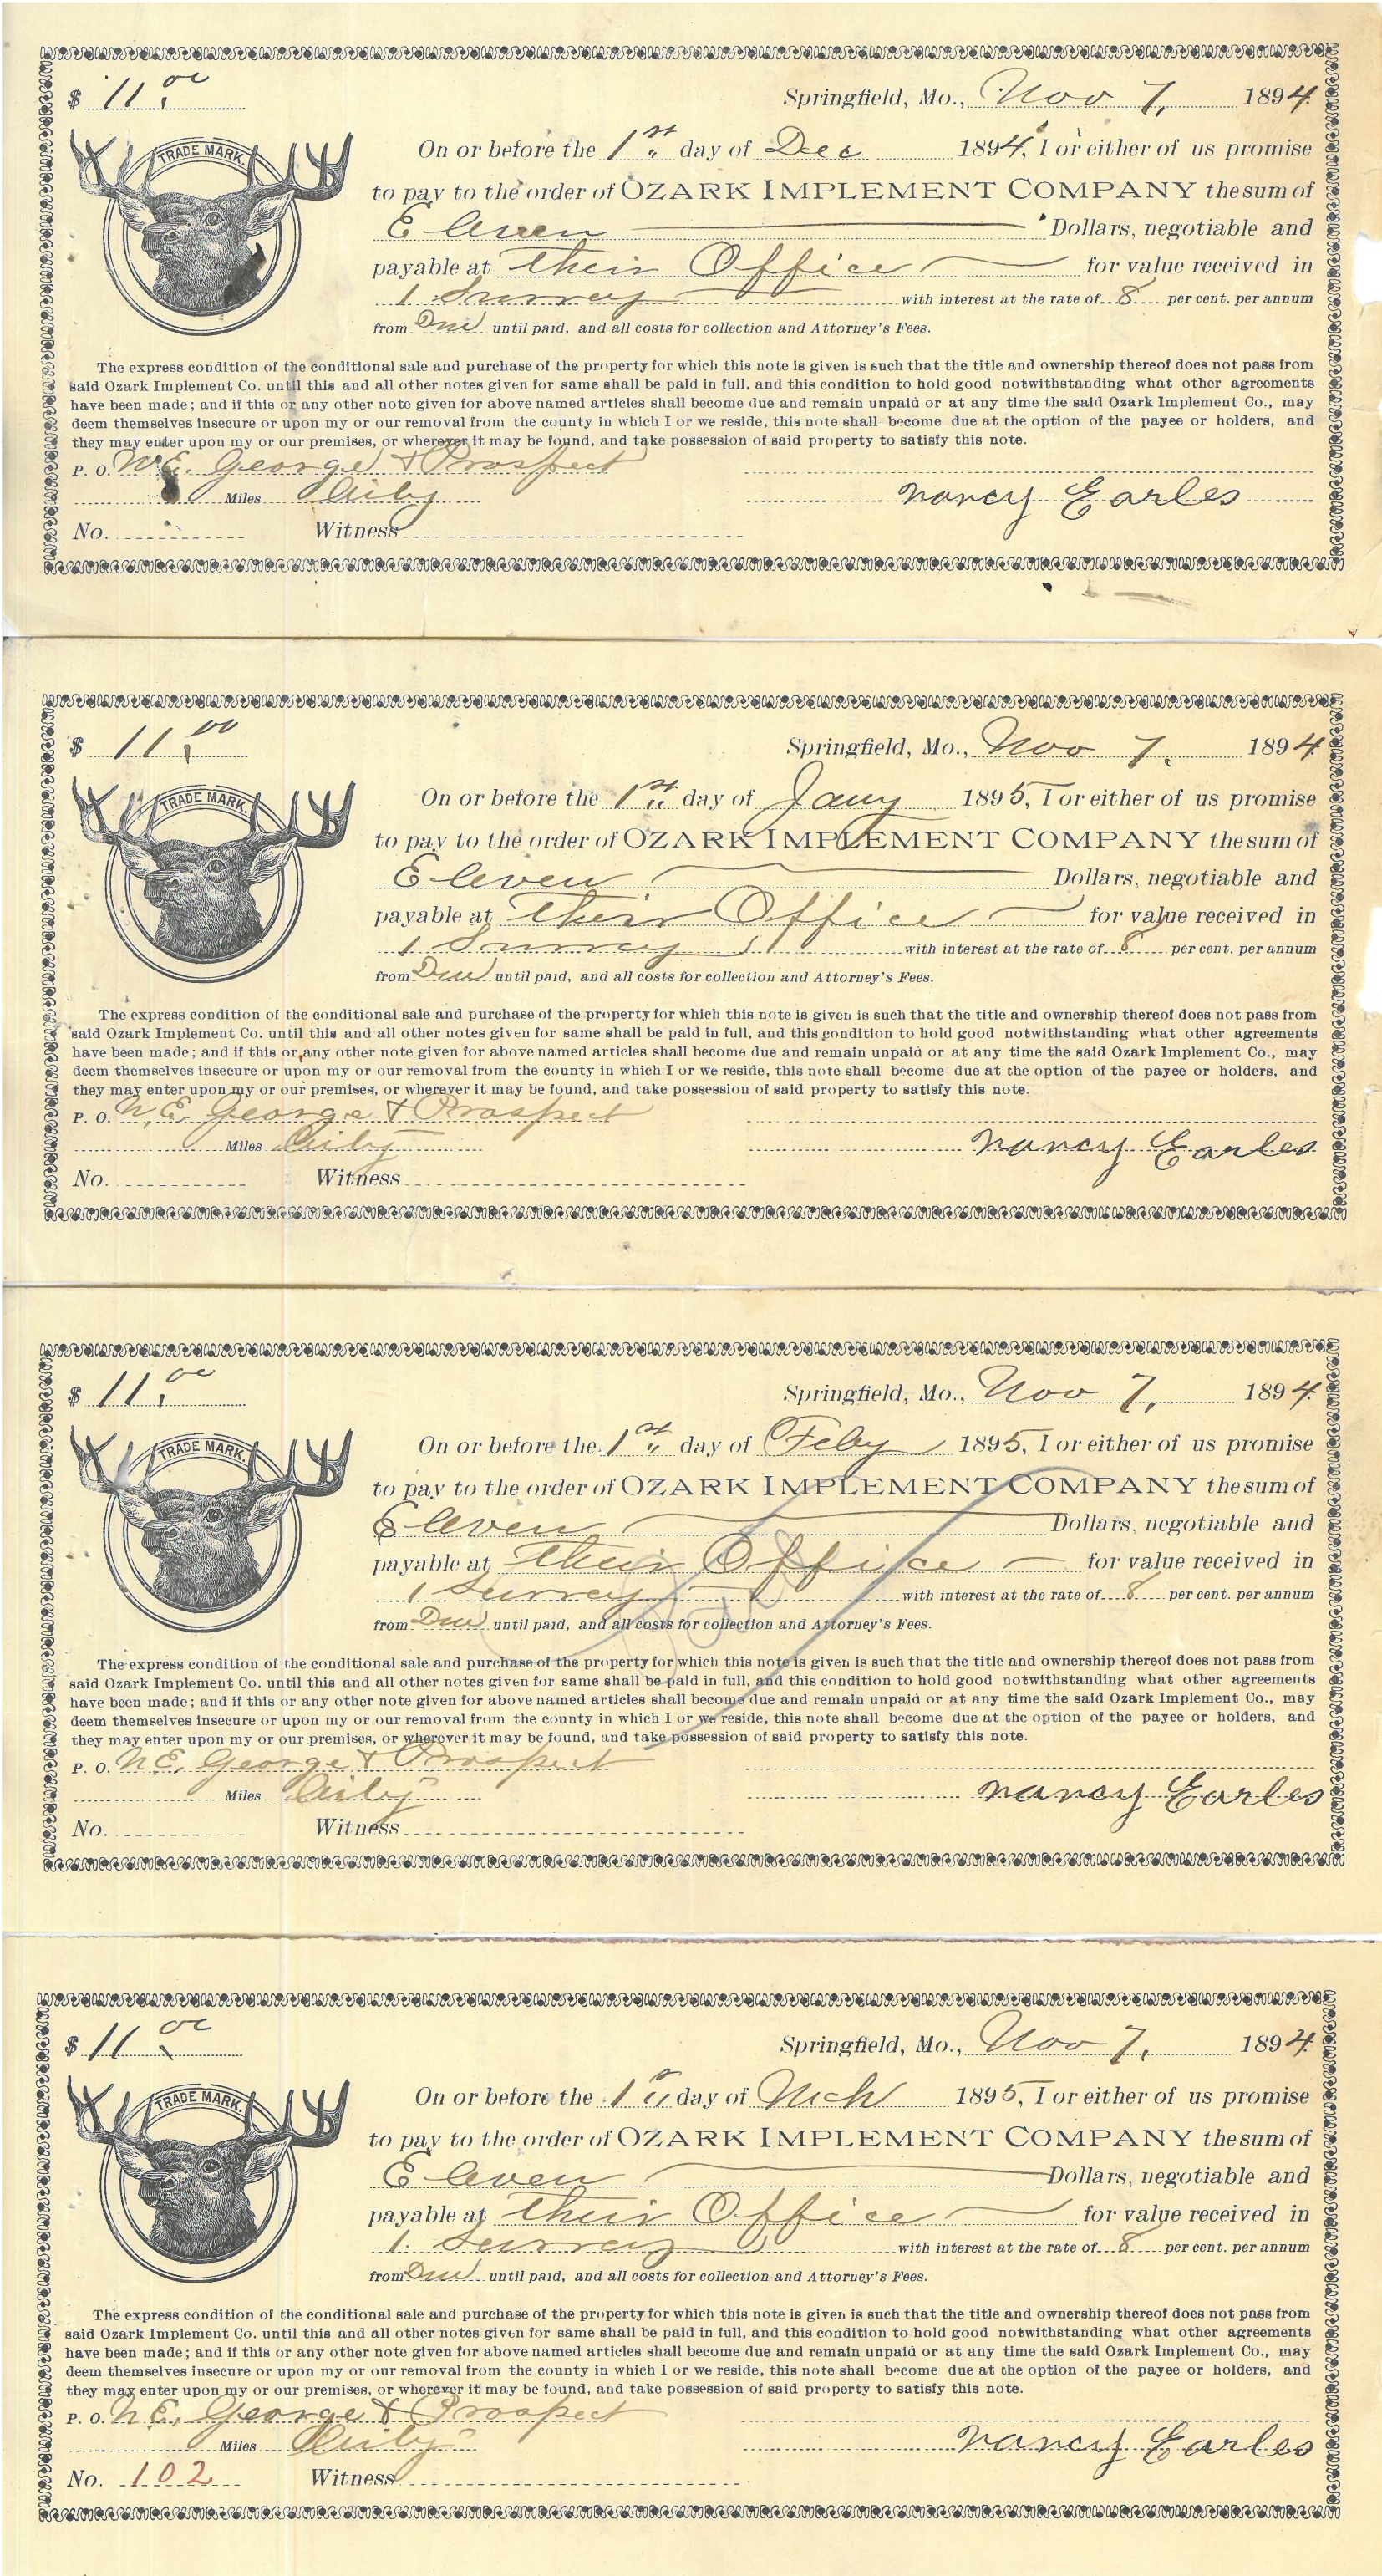 $ 11.00 Springfield, Mo., Nov 7, 1894.
TRADE MARK.
On or before the 1st day of Dec 1894, I or either of us promise
to pay to the order of OZARK IMPLEMENT COMPANY the sum of
Eleven Dollars, negotiable and
payable at their Office for value received in
1 Surrey with interest at the rate of 8 per cent. per annum
from Due until paid, and all costs for collection and Attorney's Fees.
The express condition of the conditional sale and purchase of the property for which this note is given is such that the title and ownership thereof does not pass from
said Ozark Implement Co. until this and all other notes given for same shall be paid in full, and this condition to hold good notwithstanding what other agreements
have been made; and if this or any other note given for above named articles shall become due and remain unpaid or at any time the said Ozark Implement Co., may
deem themselves insecure or upon my or our removal from the county in which I or we reside, this note shall become due at the option of the payee or holders, and
they may enter upon my or our premises, or wherever it may be found, and take possession of said property to satisfy this note.
P. O. N.E. George & Prospect
Miles City Nancy Earles
No. Witness
$ 11.00 Springfield, Mo., Nov 7, 1894
TRADE MARK.
On or before the 1st day of Jany 1895, I or either of us promise
to pay to the order of OZARK IMPLEMENT COMPANY the sum of
Eleven Dollars, negotiable and
payable at their Office for value received in
1 Surrey with interest at the rate of 8 per cent. per annum
from Due until paid, and all costs for collection and Attorney's Fees.
The express condition of the conditional sale and purchase of the property for which this note is given is such that the title and ownership thereof does not pass from
said Ozark Implement Co. until this and all other notes given for same shall be paid in full, and this condition to hold good notwithstanding what other agreements
have been made; and if this or any other note given for above named articles shall become due and remain unpaid or at any time the said Ozark Implement Co., may
deem themselves insecure or upon my or our removal from the county in which I or we reside, this note shall become due at the option of the payee or holders, and
they may enter upon my or our premises, or wherever it may be found, and take possession of said property to satisfy this note.
P. O. N.E. George & Prospect
Miles City Nancy Earles
No. Witness
$ 11.00 Springfield, Mo., Nov 7, 1894
TRADE MARK.
On or before the 1st day of Feby 1895, I or either of us promise
to pay to the order of OZARK IMPLEMENT COMPANY the sum of
Eleven Dollars, negotiable and
payable at their Office for value received in
1 Surrey with interest at the rate of 8 per cent. per annum
from Due until paid, and all costs for collection and Attorney's Fees.
The express condition of the conditional sale and purchase of the property for which this note is given is such that the title and ownership thereof does not pass from
said Ozark Implement Co. until this and all other notes given for same shall be paid in full, and this condition to hold good notwithstanding what other agreements
have been made; and if this or any other note given for above named articles shall become due and remain unpaid or at any time the said Ozark Implement Co., may
deem themselves insecure or upon my or our removal from the county in which I or we reside, this note shall become due at the option of the payee or holders, and
they may enter upon my or our premises, or wherever it may be found, and take possession of said property to satisfy this note.
P. O. N.E. George & Prospect
Miles City Nancy Earles
No. Witness
$ 11.00 Springfield, Mo., Nov 7, 1894.
TRADE MARK.
On or before the 1st day of Mch 1895, I or either of us promise
to pay to the order of OZARK IMPLEMENT COMPANY the sum of
Eleven Dollars, negotiable and
payable at their Office for value received in
1 Surrey with interest at the rate of 8 per cent. per annum
from Due until paid, and all costs for collection and Attorney's Fees.
The express condition of the conditional sale and purchase of the property for which this note is given is such that the title and ownership thereof does not pass from
said Ozark Implement Co. until this and all other notes given for same shall be paid in full, and this condition to hold good notwithstanding what other agreements
have been made; and if this or any other note given for above named articles shall become due and remain unpaid or at any time the said Ozark Implement Co., may
deem themselves insecure or upon my or our removal from the county in which I or we reside, this note shall become due at the option of the payee or holders, and
they may enter upon my or our premises, or wherever it may be found, and take possession of said property to satisfy this note.
P. O. N.E. George & Prospect
Miles City Nancy Earles
No. 102 Witness